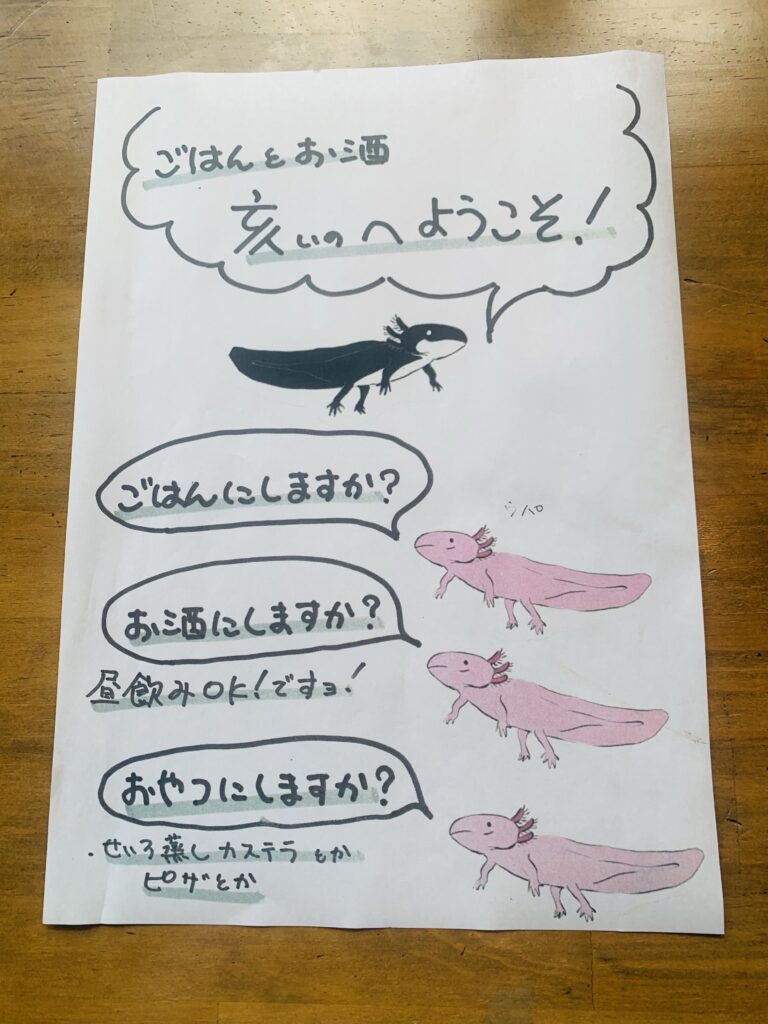 ごはんとお酒
亥いのへようこそ!
ごはんにしますか?
ウパ
お酒にしますか?
昼飲みOK!ですョ!
おやつにしますか?
・せいろ蒸しカステラとか
ピザとか